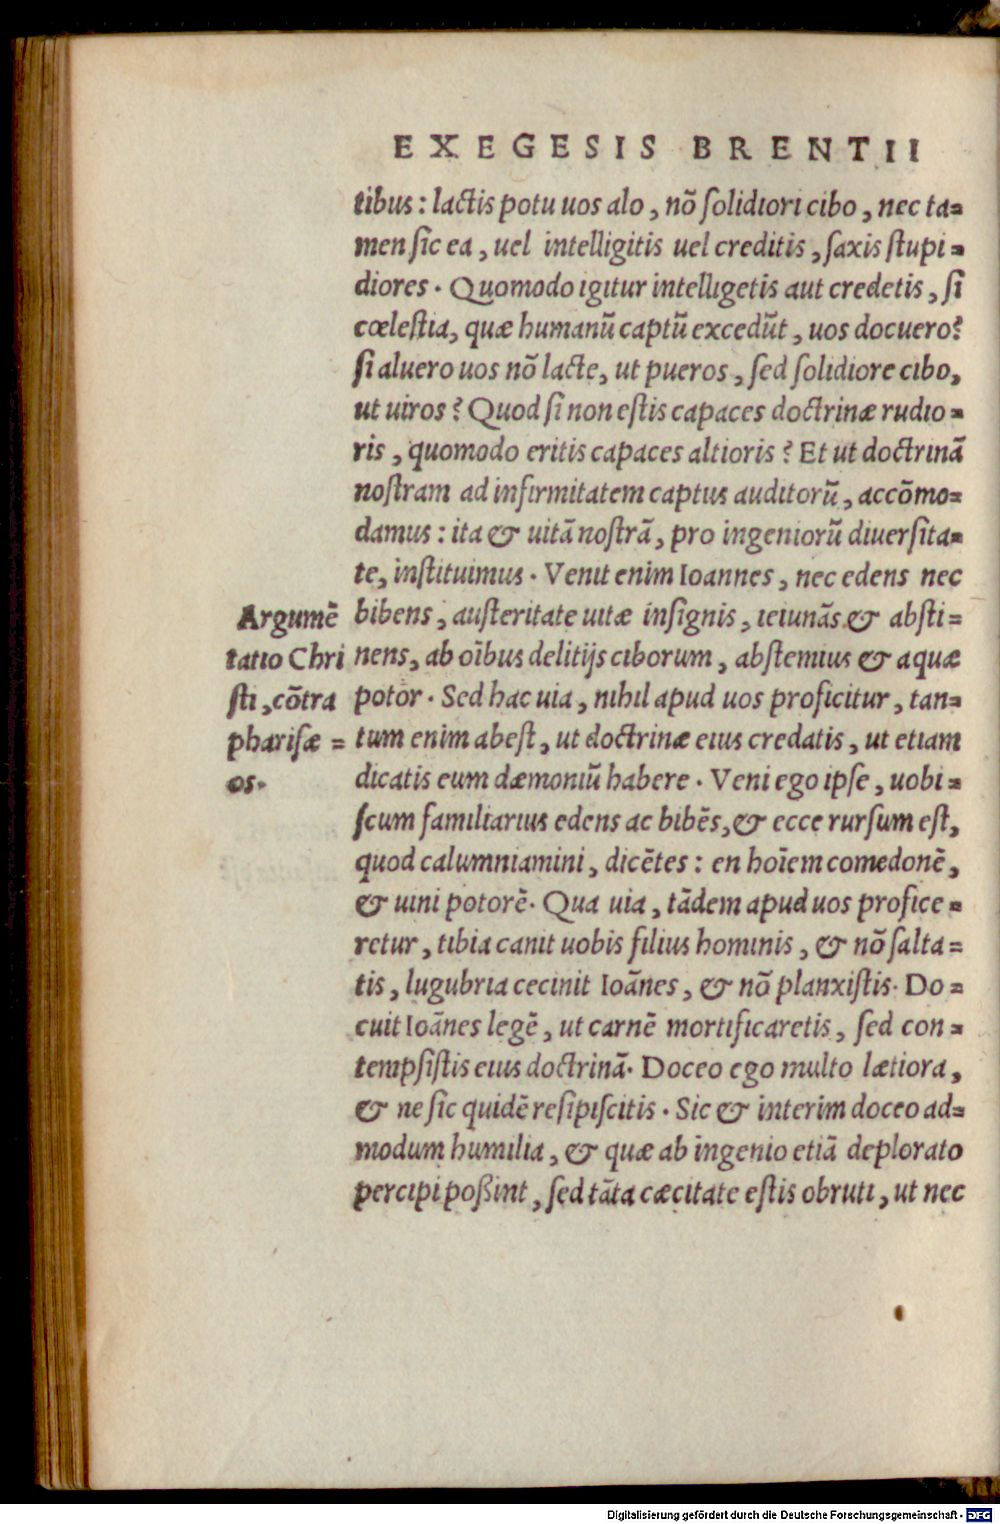 EXEGESIS BRENTII
tibus : lactis potu uos alo, nō ſolidiori cibo, nec ta=
men ſic ea, uel intelligitis uel creditis, ſaxis ſtupi=
diores. Quomodo igitur intelligetis aut credetis, ſi
cœleſtia, quæ humanū captū excedūt, uos docuero?
ſi aluero uos nō lacte, ut pueros, ſed ſolidiore cibo,
ut uiros? Quod ſi non eſtis capaces doctrinæ rudio=
ris, quomodo eritis capaces altioris? Et ut doctrinā
noſtram ad infirmitatem captus auditorū, accōmo=
damus : ita & uitā noſtrā, pro ingeniorū diuerſita=
te, inſtituimus. Venit enim Ioannes, nec edens nec
bibens, auſteritate uitæ inſignis, ieiunās & abſti=
nens, ab oībus delitijs ciborum, abſtemius & aquæ
potor. Sed hac uia, nihil apud uos proficitur, tan=
tum enim abeſt, ut doctrinæ eius credatis, ut etiam
dicatis eum dæmoniū habere. Veni ego ipſe, uobi=
ſcum familiarius edens ac bibēs, & ecce rurſum eſt,
quod calumniamini, dicētes : en hoīem comedonē,
& uini potorē. Qua uia, tādem apud uos profice=
retur, tibia canit uobis filius hominis, & nō ſalta=
tis, lugubria cecinit Ioānes, & nō planxiſtis. Do=
cuit Ioānes legē, ut carnē mortificaretis, ſed con=
tempſiſtis eius doctrinā. Doceo ego multo lætiora,
& ne ſic quidē reſipiſcitis. Sic & interim doceo ad=
modum humilia, & quæ ab ingenio etiā deplorato
percipi poßint, ſed tāta cæcitate eſtis obruti, ut nec
Argumē
tatio Chri
ſti, cōtra
phariſæ=
os.
Digitalisierung gefördert durch die Deutsche Forschungsgemeinschaft - DFG